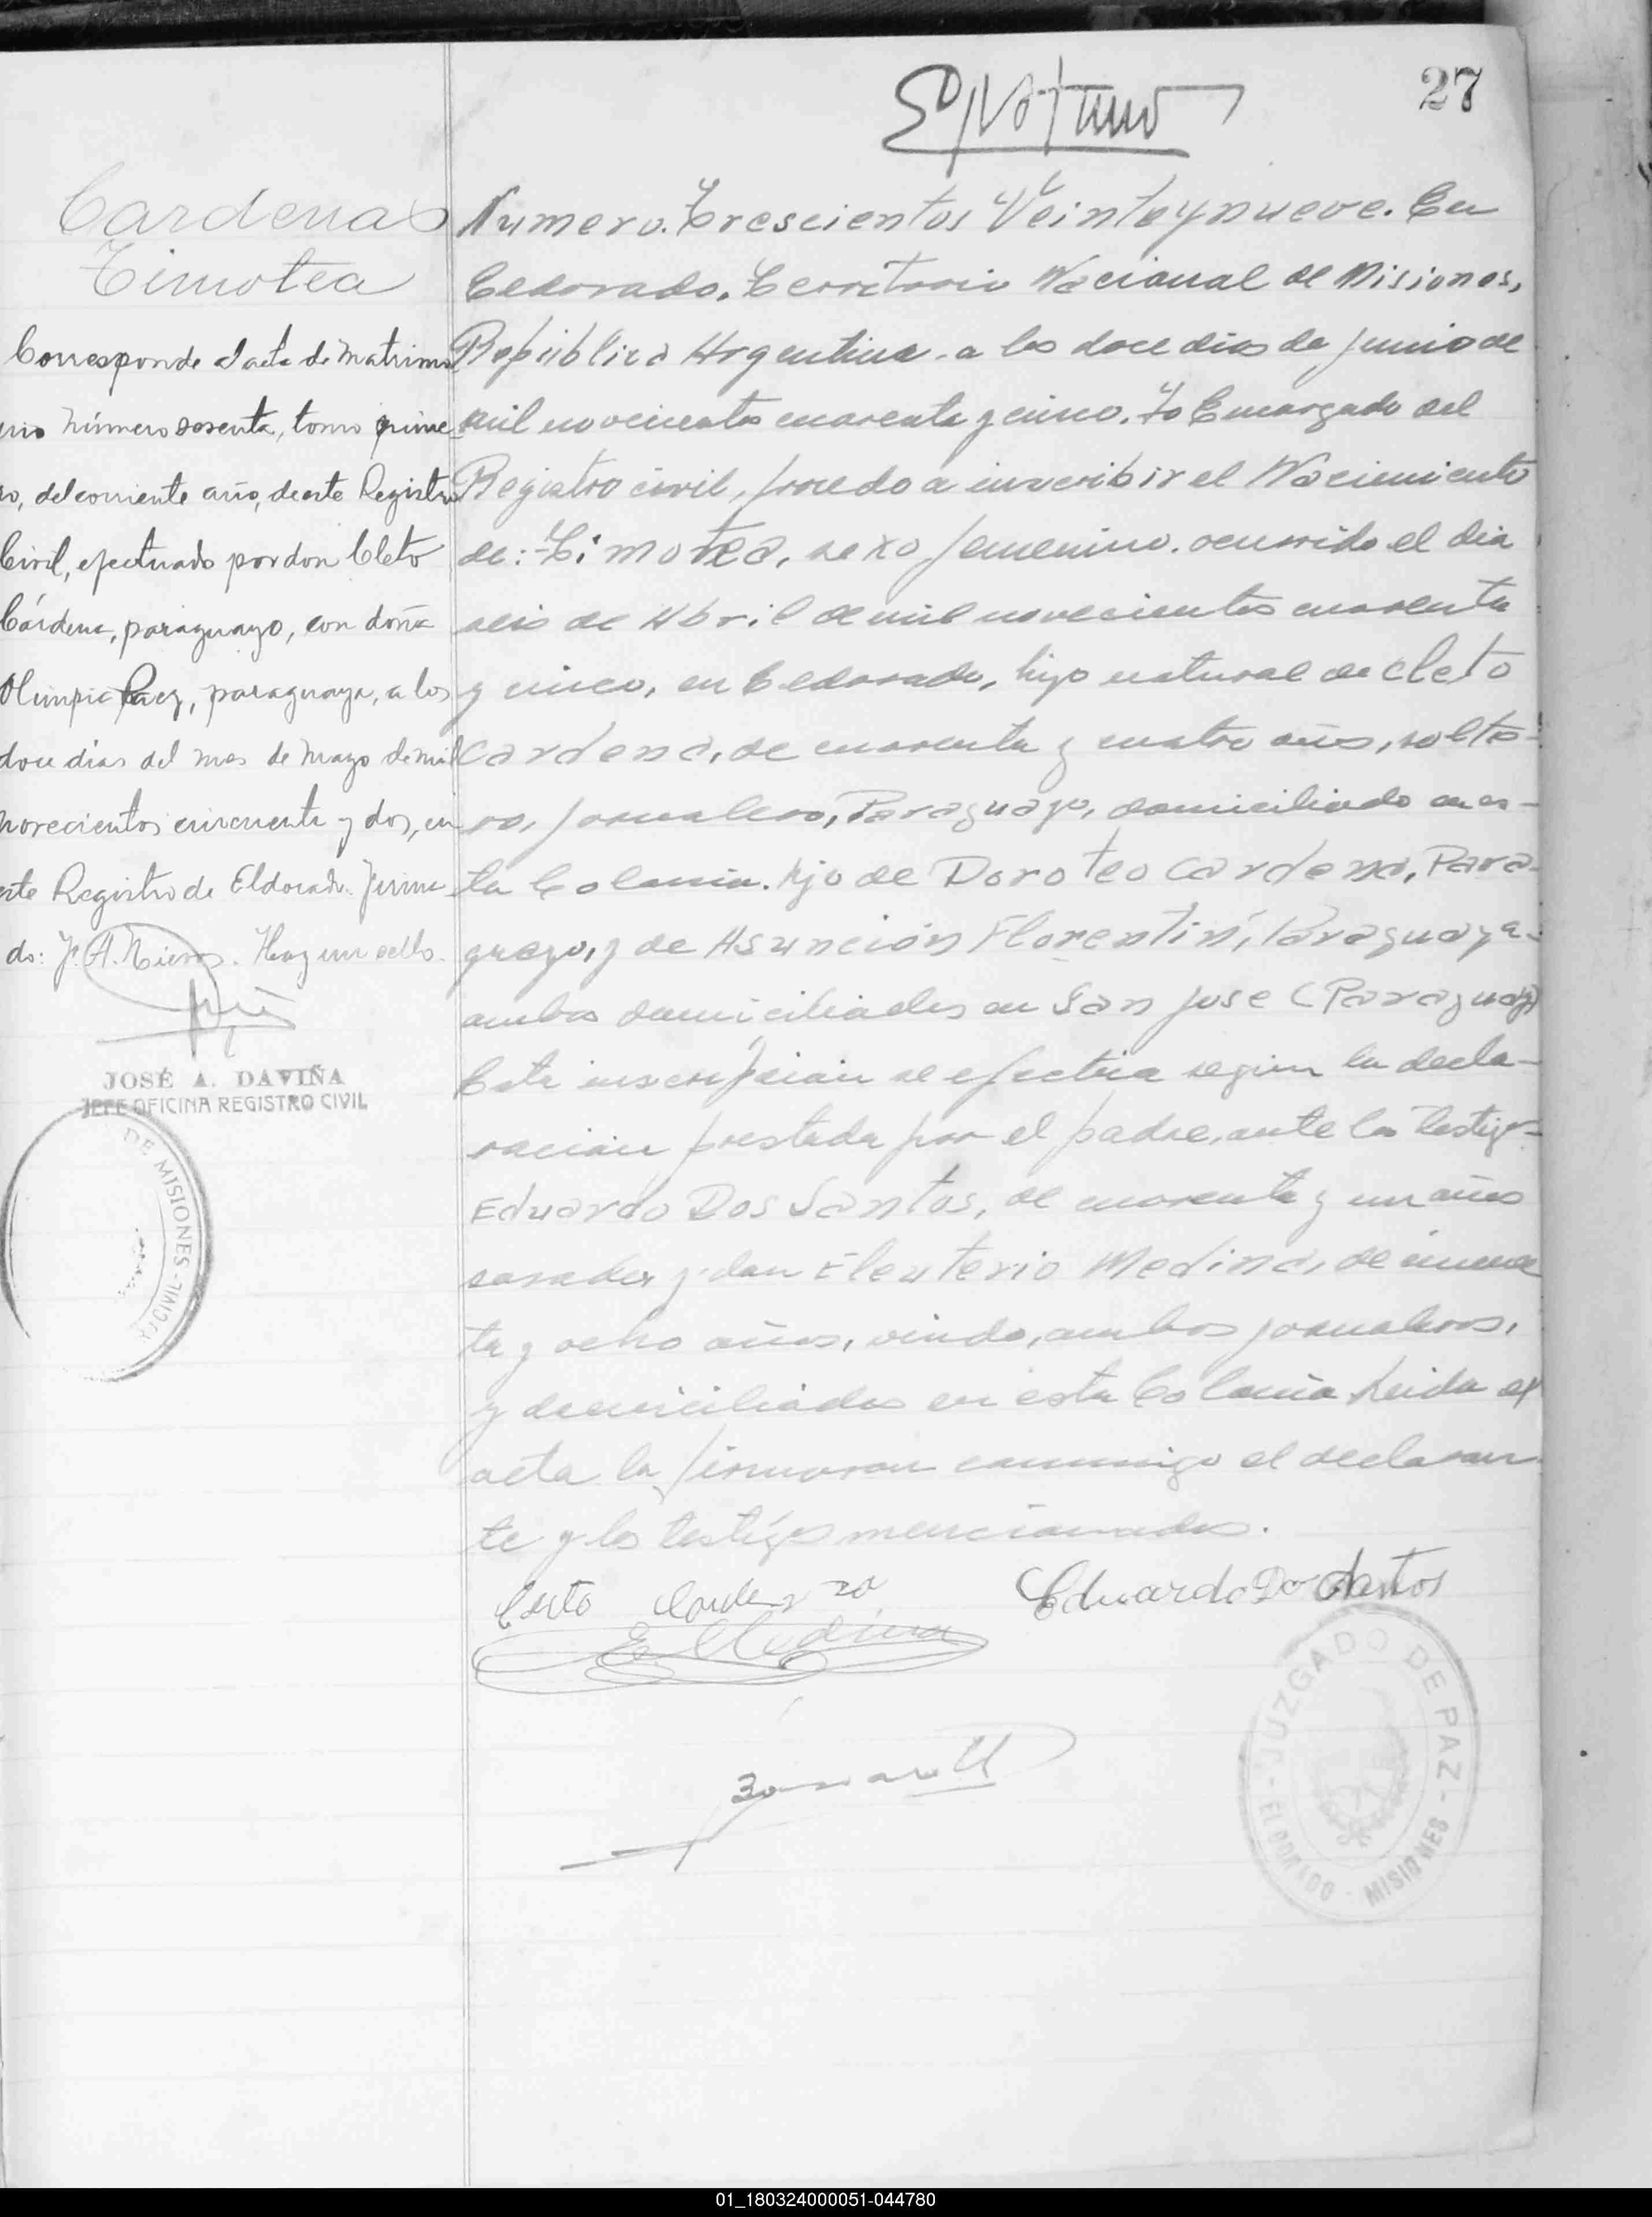 27
Cardenas
Timotea
Corresponde al acta de Matrimo
nio número sesenta, tomo prime
ro, del corriente año, de este Registro
Civil, efectuado por don Cleto
Cárdena, paraguayo, con doña
Olimpia Paez, paraguaya, a los
doce dias del mes de Mayo de mil
novecientos cincuenta y dos, en
este Registro de Eldorado. Firma
do: J. A. Hay un sello.
JOSÉ A. DAVIÑA
JEFE OFICINA REGISTRO CIVIL
DE MISIONES - CIVIL
Numero. Trescientos Veinteynueve. En
Eldorado. Territorio Nacional de Misiones,
República Argentina. a los doce dias de Junio de
mil novecientos cuarenta y cinco. Yo Encargado del
Registro civil, procedo a inscribir el Nacimiento
de:- Timotea, sexo femenino. ocurrido el dia
seis de Abril de mil novecientos cuarenta
y cinco, en Eldorado, hijo natural de Cleto
Cardena, de cuarenta y cuatro años, solte-
ro, jornalero, Paraguayo, domiciliado en es-
ta Colonia. hijo de Doroteo Cardena, Para-
guayo, y de Asunción Florentin, Paraguaya-
ambos domiciliados en San Jose (Paraguay)
Esta inscripción se efectúa segun la decla-
racion prestada por el padre, ante los testigos
Eduardo Dos Santos, de cuarenta y un años
casado, y don Eleuterio Medina, de cincuen
ta y ocho años, viudo, ambos jornaleros,
y domiciliados en esta Colonia Leida el
acta la firmaron conmigo el declaran
te y los testigos mencionados.
Cleto Cardena Eduardo Dos Santos
E Medina
JUZGADO DE PAZ - ELDORADO - MISIONES
01_180324000051-044780